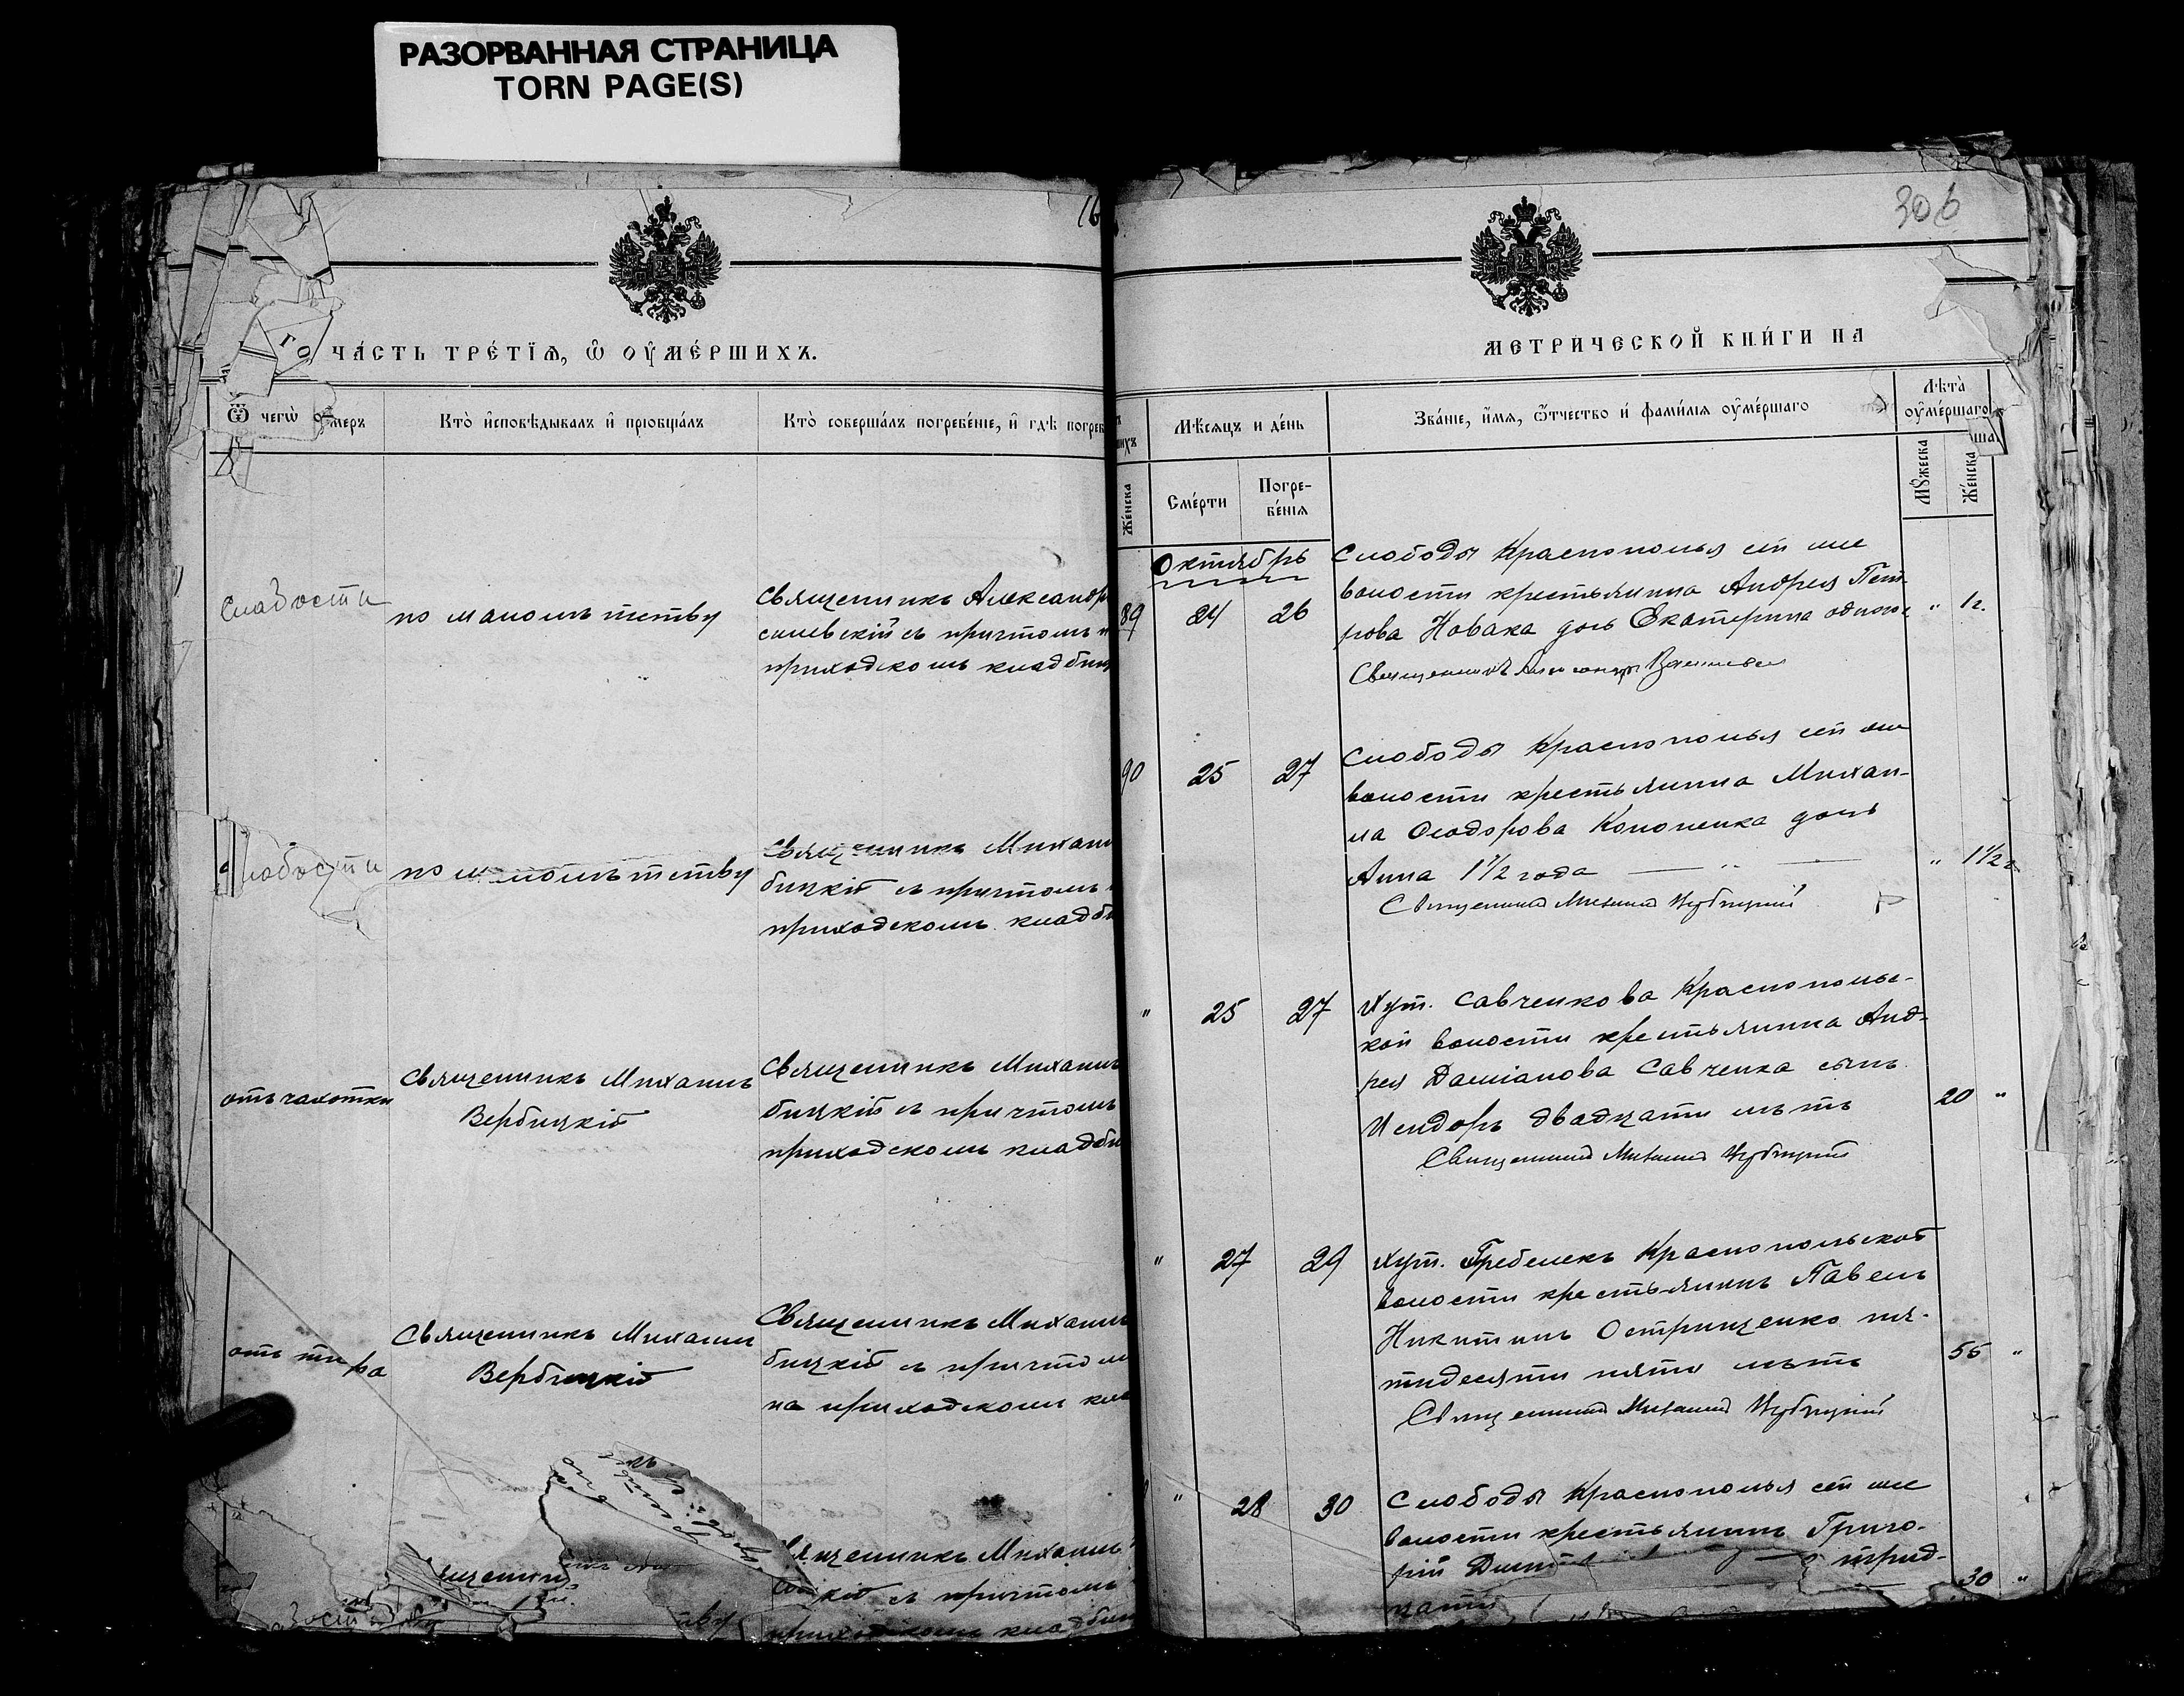 РАЗОРВАННАЯ СТРАНИЦА
TORN PAGE(S)
ГО ЧА́СТЬ ТРЕ́ТЇѦ, Ѽ ОУ҆МЕ́РШИХЪ.
Ѿ чегѡ̀ оу҆́меръ
Кто̀ и҆сповѣ́дывалъ и҆ прїобща́лъ
Кто̀ соверша́лъ погребе́нїе, и҆ гдѣ̀ погреб
слабости
по малолѣтству
Священникъ Александр
силевскій съ причтомъ н
приходскомъ кладбищ
слабости
по малолѣтству
Священникъ Михаил
бицкій съ причтомъ
приходскомъ кладби
отъ чахотки
Священникъ Михаилъ
Вербицкій
Священникъ Михаилъ
бицкій съ причтомъ
приходскомъ кладби
отъ тифа
Священникъ Михаилъ
Вербицкій
Священникъ Михаилъ
бицкій съ причтом
на приходскомъ кла
священникъ Михаилъ
цкій съ причтомъ
приходскомъ кладбищ
306
МЕТРИЧЕСКОЙ КНИ́ГИ НА
Же́нска
Мѣ́сяцъ и де́нь
Сме́рти
Погре-
бе́нїя
Зва́нїе, и҆́мя, ѻ҆́тчество и҆ фами́лїя оу҆ме́ршаго
Лѣта̀
оу҆ме́ршаго
Мꙋ́жеска
Же́нска
Октябрь
89 24 26
Слободы Краснополья сей же
волости крестьянина Андрея Пет-
рова Новака дочь Екатерина одного
" 1 г.
Священникъ Александръ Василевскій
90 25 27
Слободы Краснополья сей же
волости крестьянина Михаи-
ла Ѳеодорова Кононенка дочь
Анна 1 1/2 года
" 1 1/2 г.
Священникъ Михаилъ Вербицкій
" 25 27
Хут. Савченкова Краснополье-
кой волости крестьянина Анд-
рея Даміанова Савченка сынъ
Исидоръ двадцати лѣтъ
20 "
Священникъ Михаилъ Вербицкій
" 27 29
Хут. Гребелекъ Краснопольской
волости крестьянинъ Павелъ
Никитинъ Остриценко пя-
тидесяти пяти лѣтъ
55 "
Священникъ Михаилъ Вербицкій
" 28 30
Слободы Краснополья сей же
волости крестьянинъ Григо-
рій трид-
цати
30 "